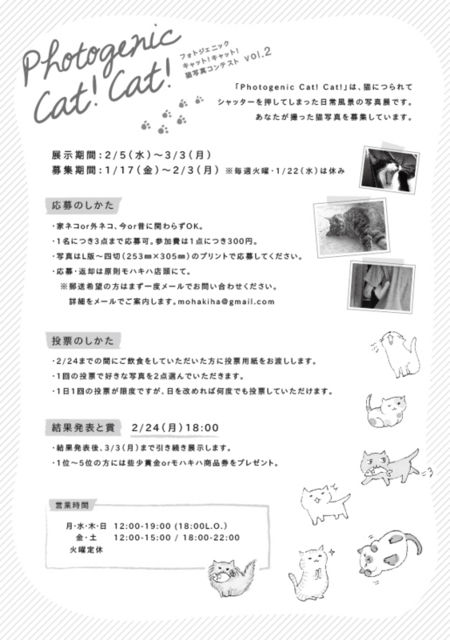 Photogenic
Cat! Cat!
フォトジェニック
キャット!キャット!
猫写真コンテスト vol.2
「Photogenic Cat! Cat!」は、猫につられて
シャッターを押してしまった日常風景の写真展です。
あなたが撮った猫写真を募集しています。
展示期間:2/5(水)〜3/3(月)
募集期間:1/17(金)〜2/3(月) ※毎週火曜・1/22(水)は休み
応募のしかた
・家ネコor外ネコ、今or昔に関わらずOK。
・1名につき3点まで応募可。参加費は1点につき300円。
・写真はL版〜四切(253㎜×305㎜)のプリントで応募してください。
・応募・返却は原則モハキハ店頭にて。
※郵送希望の方はまず一度メールでお問い合わせください。
詳細をメールでご案内します。mohakiha@gmail.com
投票のしかた
・2/24までの間にご飲食をしていただいた方に投票用紙をお渡しします。
・1回の投票で好きな写真を2点選んでいただきます。
・1日1回の投票が限度ですが、日を改めれば何度でも投票していただけます。
結果発表と賞 2/24(月)18:00
・結果発表後、3/3(月)まで引き続き展示します。
・1位〜5位の方には些少賞金orモハキハ商品券をプレゼント。
営業時間
月・水・木・日 12:00-19:00 (18:00L.O.)
金・土 12:00-15:00 / 18:00-22:00
火曜定休